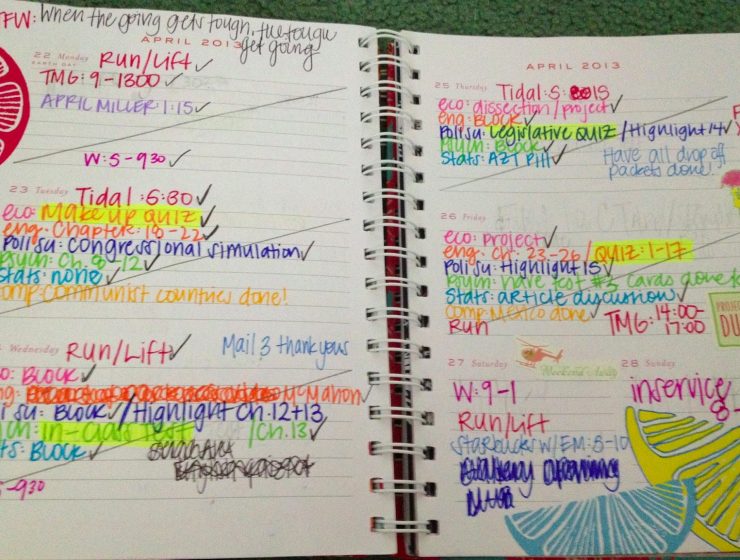 FW: When the going gets tough, the tough
get going
APRIL 2013
22 Monday
EARTH DAY
Run/Lift ✓
TMG: 9-1300 ✓
APRIL MILLER 1:15 ✓
W: 5-930 ✓
23 Tuesday
Tidal: 5:30 ✓
eco: Make up QUIZ ✓
eng: Chapter: 18-22 ✓
Poli Su: Congressional simulation ✓
Psych: Ch. 8-12 ✓
Stats: none ✓
comp: communist countries done!
Wednesday
Run/Lift ✓
Mail 3 thank yous
o: BLOCK ✓
McMahon ✓
i su: BLOCK ✓/Highlight Ch. 12+13
ch: in-class Test /Ch. 13 ✓
ts: BLOCK ✓
5-930
APRIL 2013
25 Thursday
Tidal 5: 15
eco: dissection/project ✓
eng: BLOCK ✓
Poli su: Legislative QUIZ /Highlight 14 ✓
BLOCK ✓
Stats: AZT Pill ✓
Have all drop off
packets done!
26 Friday
eco: project ✓
eng: Ch. 23-26 /QUIZ: 1-17
Poli su: Highlight 15 ✓
have test #3 cards done
Stats: article discussion ✓
comp: Mexico done ✓
Run
TMG: 14:00-
17:00
PROJE
DU
27 Saturday
Weekend Away
28 Sunday
W: 9-1
inservice
8-
Run/Lift
Starbucks W/EM: 8-10